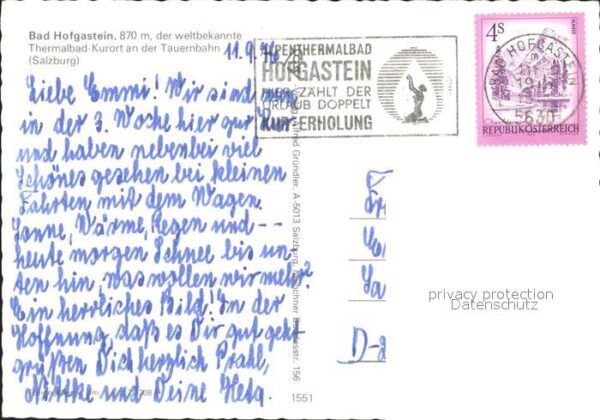 Bad Hofgastein, 870 m, der weltbekannte
Thermalbad-Kurort an der Tauernbahn
(Salzburg)
11.9.76
Liebe Emmi! Wir sind nun
in der 3. Woche hier zur Kur
und haben nebenbei viel
Schönes gesehen bei kleinen
Fahrten mit dem Wagen.
Sonne, Wärme, Regen und --
heute morgen Schnee bis un-
ten hin, was wollen wir mehr?
Ein herrliches Bild! In der
Hoffnung, daß es Dir gut geht
grüßen Dich herzlich
und Deine
ALPENTHERMALBAD
HOFGASTEIN
HIER ZÄHLT DER
URLAUB DOPPELT
KUR-ERHOLUNG
BAD HOFGASTEIN
5630
4S
REPUBLIK ÖSTERREICH
Gründler, A-5013 Salzburg, Münchner Bundesstr. 156
1551
D-
privacy protection
Datenschutz